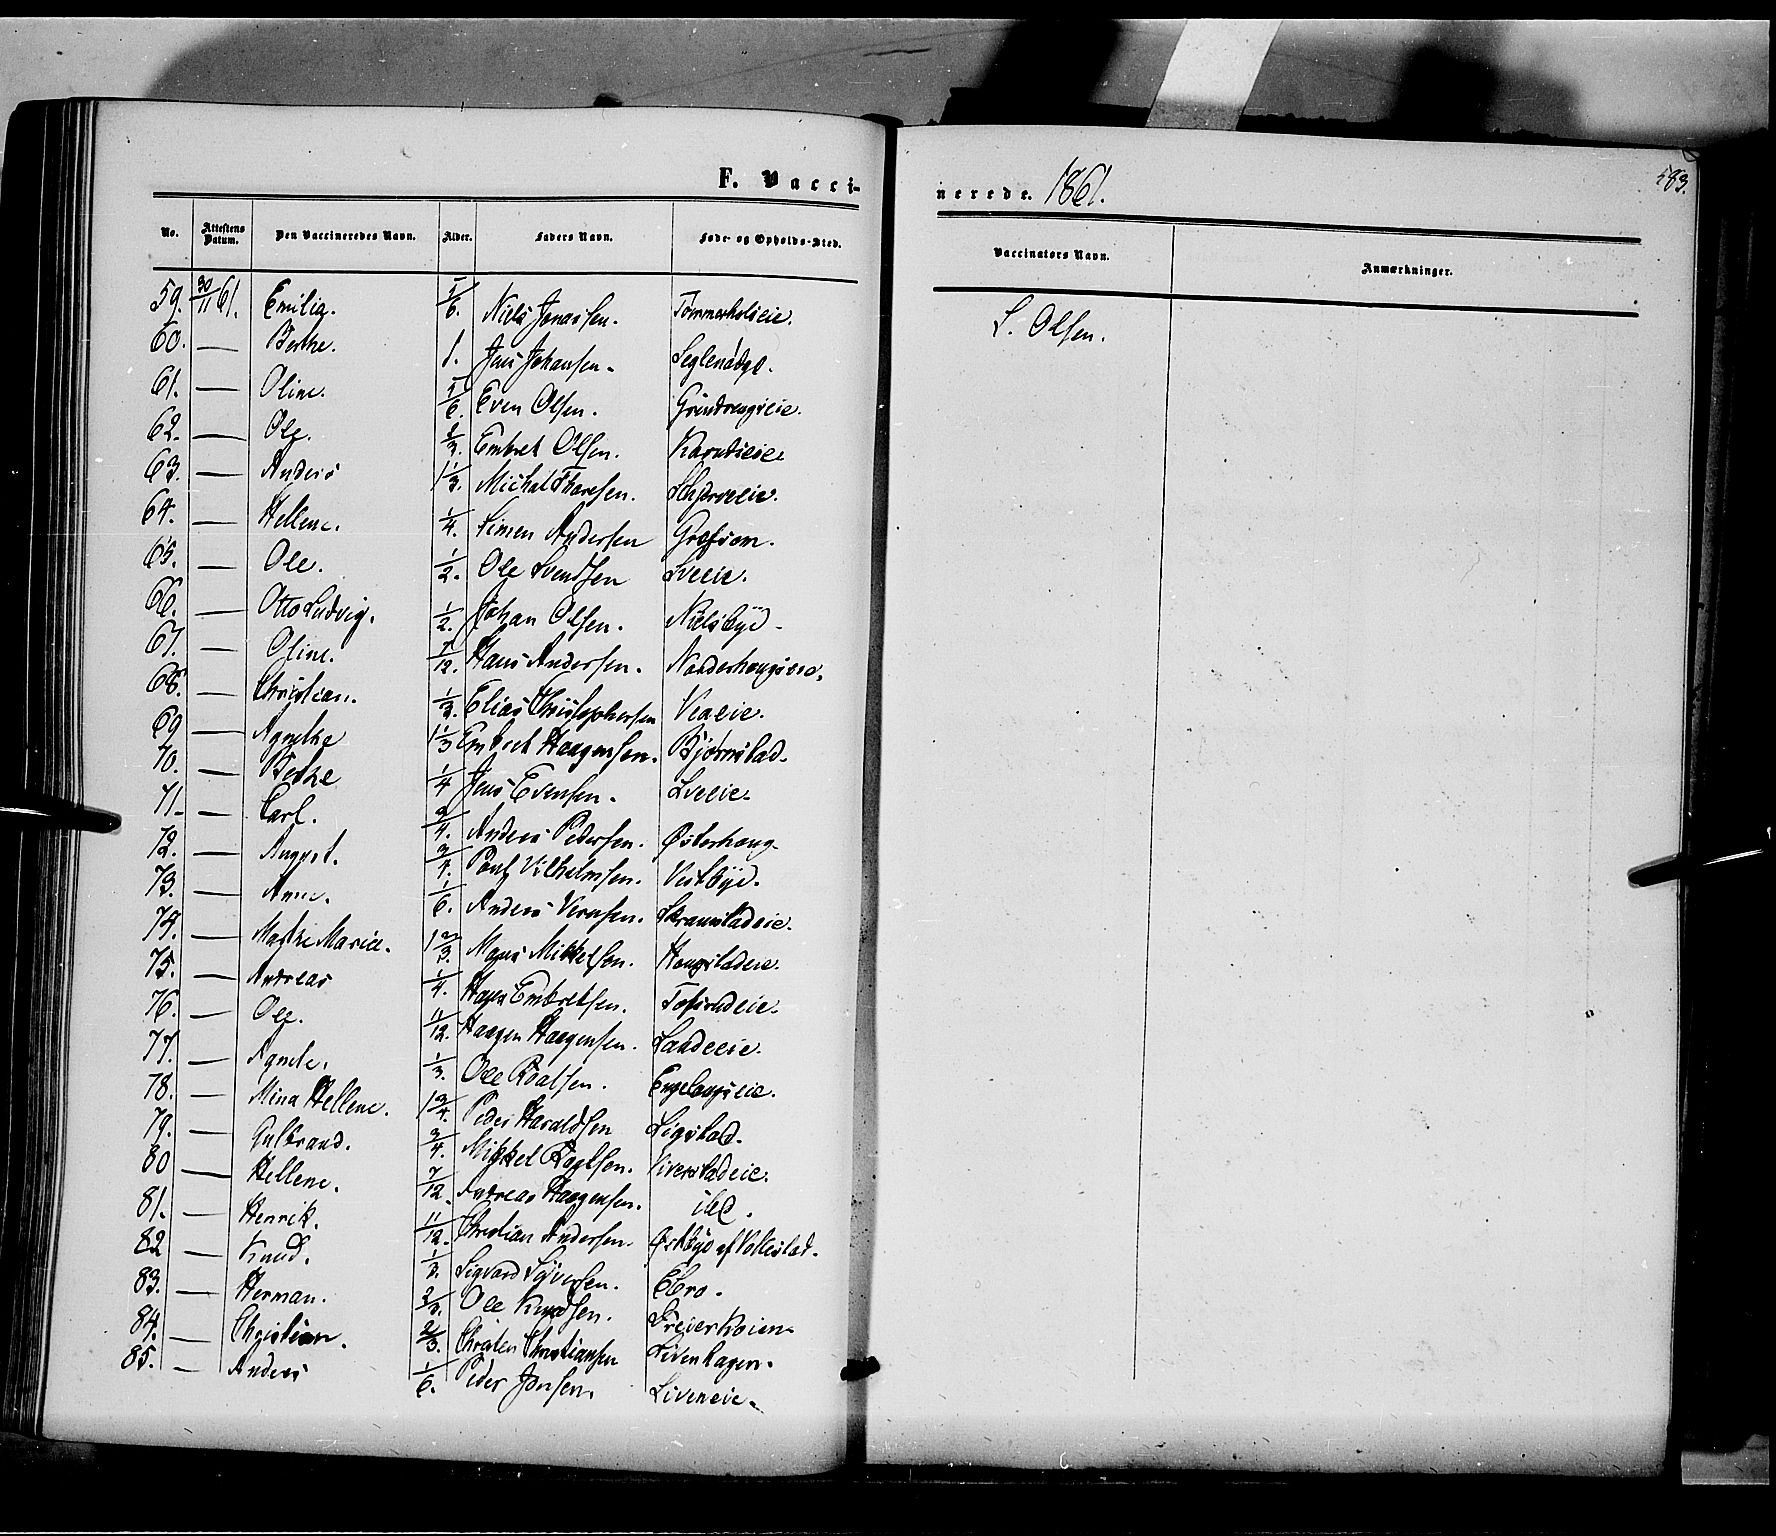 F. Vacci-
No. Attestens Datum. Den Vaccineredes Navn. Alder. Faders Navn. Føde- og Opholds-Sted.
59. 30/11 61. Emilia. 5/6. Niels Jonassen. Tømmerholseie.
60. — Berthe. 1. Jens Johansen.
61. — Oline. 5/6. Even Olsen. Grindrengseie.
62. — Ole. 2/3. Embret Olsen.
63. — Anders 1 1/3. Michal Thoresen.
64. — Hellene. 1/4. Simen Andersen Grafson.
65. — Ole. 1/2. Ole Svendsen Sveeie.
66. — Otto Ludvig. 1/2. Johan Olsen. Nielsbye.
67. — Oline. 7/12. Hans Andersen. Norderhougseie.
68. — Christian. 1/3. Elias Christophersen Veaeie.
69 — Agnethe 1 1/3 Embret Haagensen. Bjørnstad.
70. — Berthe 1/4 Jens Evensen. Sveeie.
71. — Carl. 3/4. Anders Pedersen. Østerhoug.
72. — August. 3/4. Paul Vilhelmsen. Vestbye.
73. — Anne. 1/6. Anders Iversen. Skramstadeie.
74. — Mathe Marie. 1 2/3. Mons Mikkelsen. Hougstadeie.
75. — Andreas 1/4. Hagen Embretsen. Tofsrudeie.
76. — Ole. 11/12. Haagen Haagensen. Sandeeie.
77. — Agnete. 1/3. Ole Roalsen. Engelaugseie.
78. — Mina Hellene. 1 3/4. Peder Haraldsen Ligstad.
79. — Gulbrand. 3/4. Mikkel Roalsen. Siverstadeie.
80 — Hellene. 7/12. Andreas Haagensen. ibd.
81. — Henrik. 11/12. Christian Andersen. Østbye af Vollestad.
82 — Knud. 1/3. Sigvard Syversen. Ebro.
83. — Herman. 2/3. Ole Knudsen. Greierkoien.
84. — Christian. 2/3. Christen Christiansen Livenhagen.
85. — Anders 1/6. Peder Jonsen. Liveneie.
nerede. 1861.
583.
Vaccinators Navn. Anmærkninger.
S. Olsen.